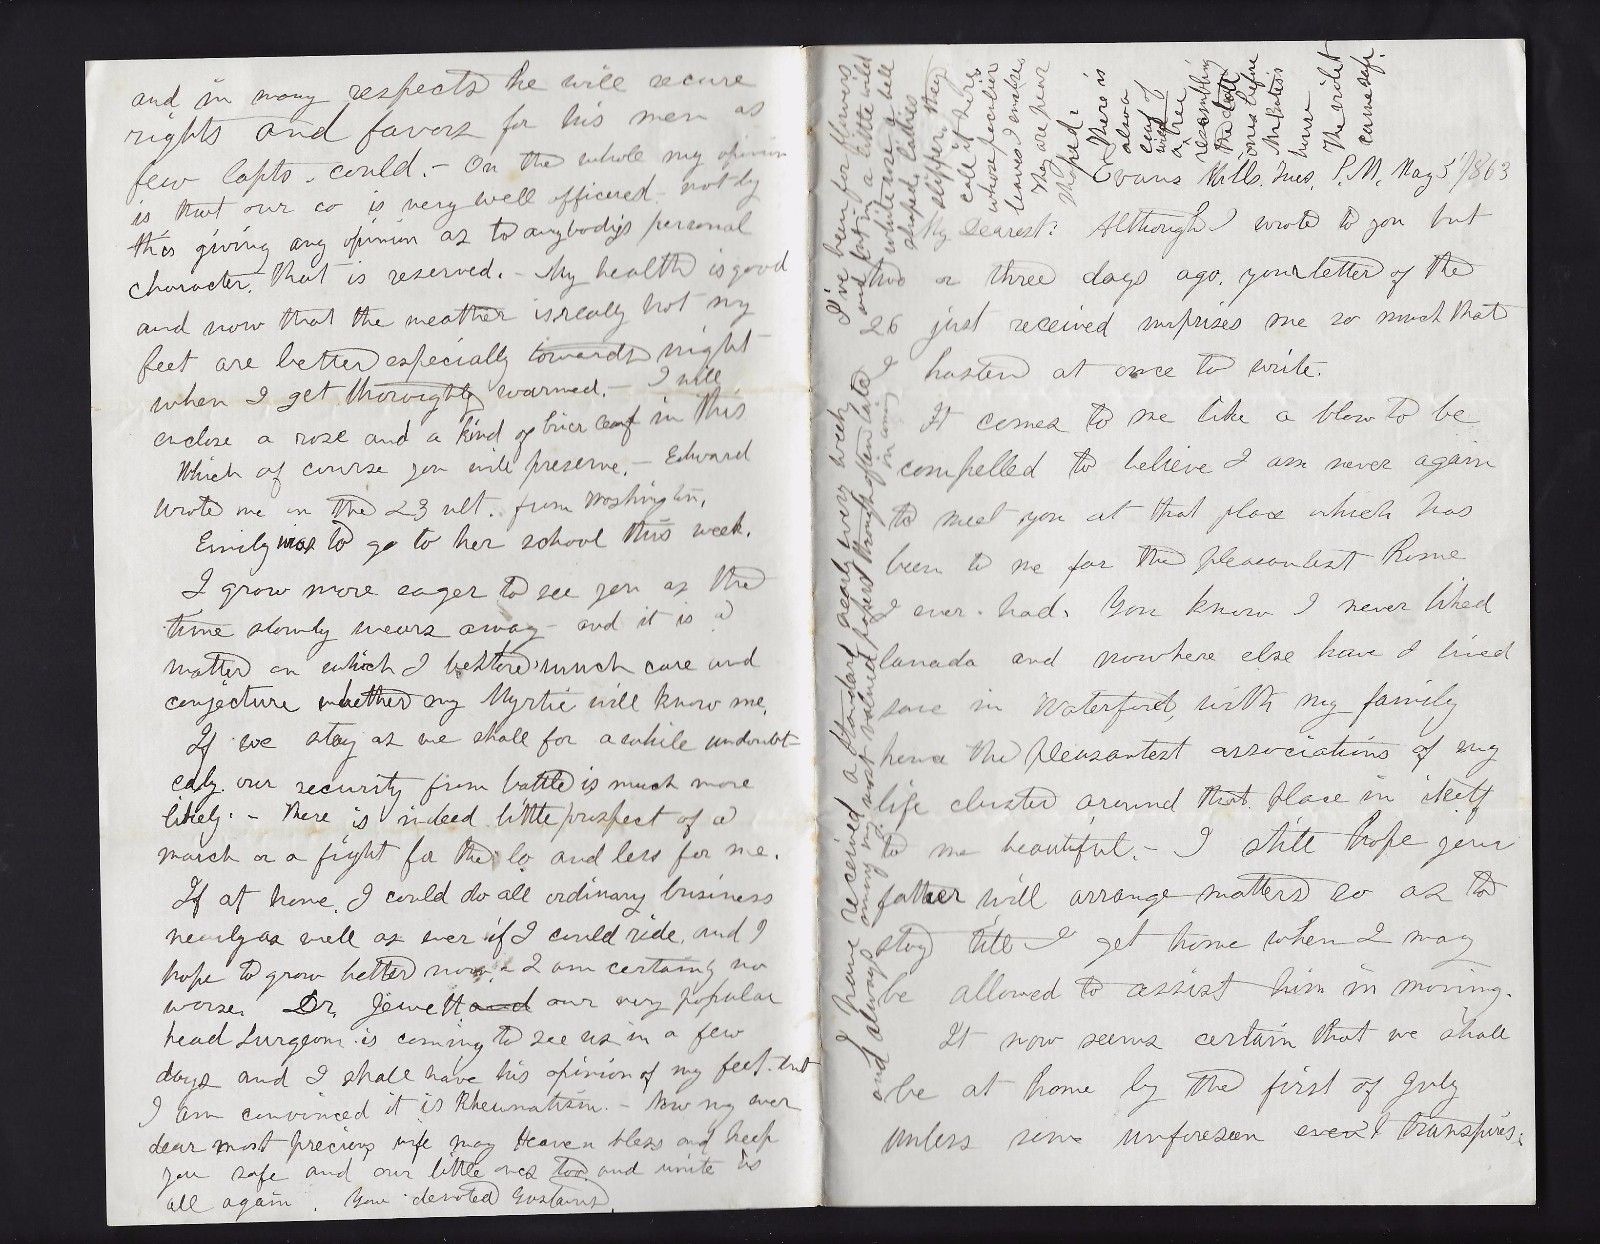 Evans Mills. Tues. P.M. May 5" 1863
My Dearest: Although I wrote to you but
two or three days ago, your letter of the
26 just received surprises me so much that I
hasten at once to write.
It comes to me like a blow to be
compelled to believe I am never again
to meet you at that place which has
been to me far the pleasantest home
I ever had. You know I never liked
Canada and nowhere else have I lived
save in Waterford, with my family
hence the pleasantest associations of my
life cluster around that place in itself
to me beautiful. - I still hope your
father will arrange matters so as to
stay till I get home when I may
be allowed to assist him in moving.
It now seems certain that we shall
be at home by the first of July
unless some unforeseen event transpires.
and in many respects he will secure
rights and favors for his men as
few Capts. could. - On the whole my opinion
is that our co is very well officered - not by
this giving any opinion as to anybody's personal
character, that is reserved. - My health is good
and now that the weather is really hot my
feet are better especially towards night
when I get thoroughly warmed. - I will
enclose a rose and a kind of brier leaf in this
which of course you will preserve. - Edward
wrote me on the 23 ult. from Washington.
Emily was to go to her school this week.
I grow more eager to see you as the
time slowly wears away - and it is a
matter on which I bestow much care and
conjecture whether my Myrtie will know me.
If we stay as we shall for a while undoubt-
edly our security from battle is much more
likely. - There is indeed little prospect of a
march or a fight for the Co and less for me.
If at home, I could do all ordinary business
nearly as well as ever if I could ride, and I
hope to grow better now. - I am certainly no
worse. Dr. Jewett and our very popular
head Surgeon is coming to see us in a few
days and I shall have his opinion of my feet - but
I am convinced it is Rheumatism. - Now my ever
dear most precious wife may Heaven bless and keep
you safe and our little ones too and unite us
all again. Your devoted Gustavus.
I have received a Standard nearly every week
and always among my most valued papers though often late
in coming
I've been for flowers
and put in a little wild
white rose & bell
shaped, ladies
slipper, they
call it here,
whose peculiar
leaves I enclose.
They are pear
shaped.
There is
also a
leaf of
wild
a tree
resembling
the
ones before
house
The violet
came safe.